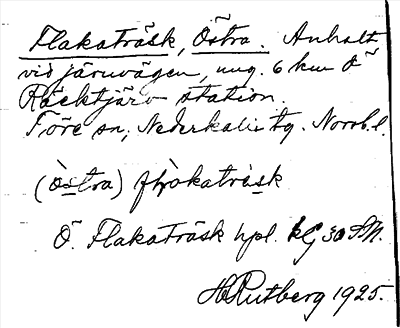 Flakaträsk, Östra. Anhalt
vid järnvägen, ung. 6 km Ö
Räcktjärv station.
Töre sn, Nederkalix tg. Norrb. l.
(östra) flakaträsk
Ö. Flakaträsk hpl. kG 30 SM.
H Rutberg 1925.